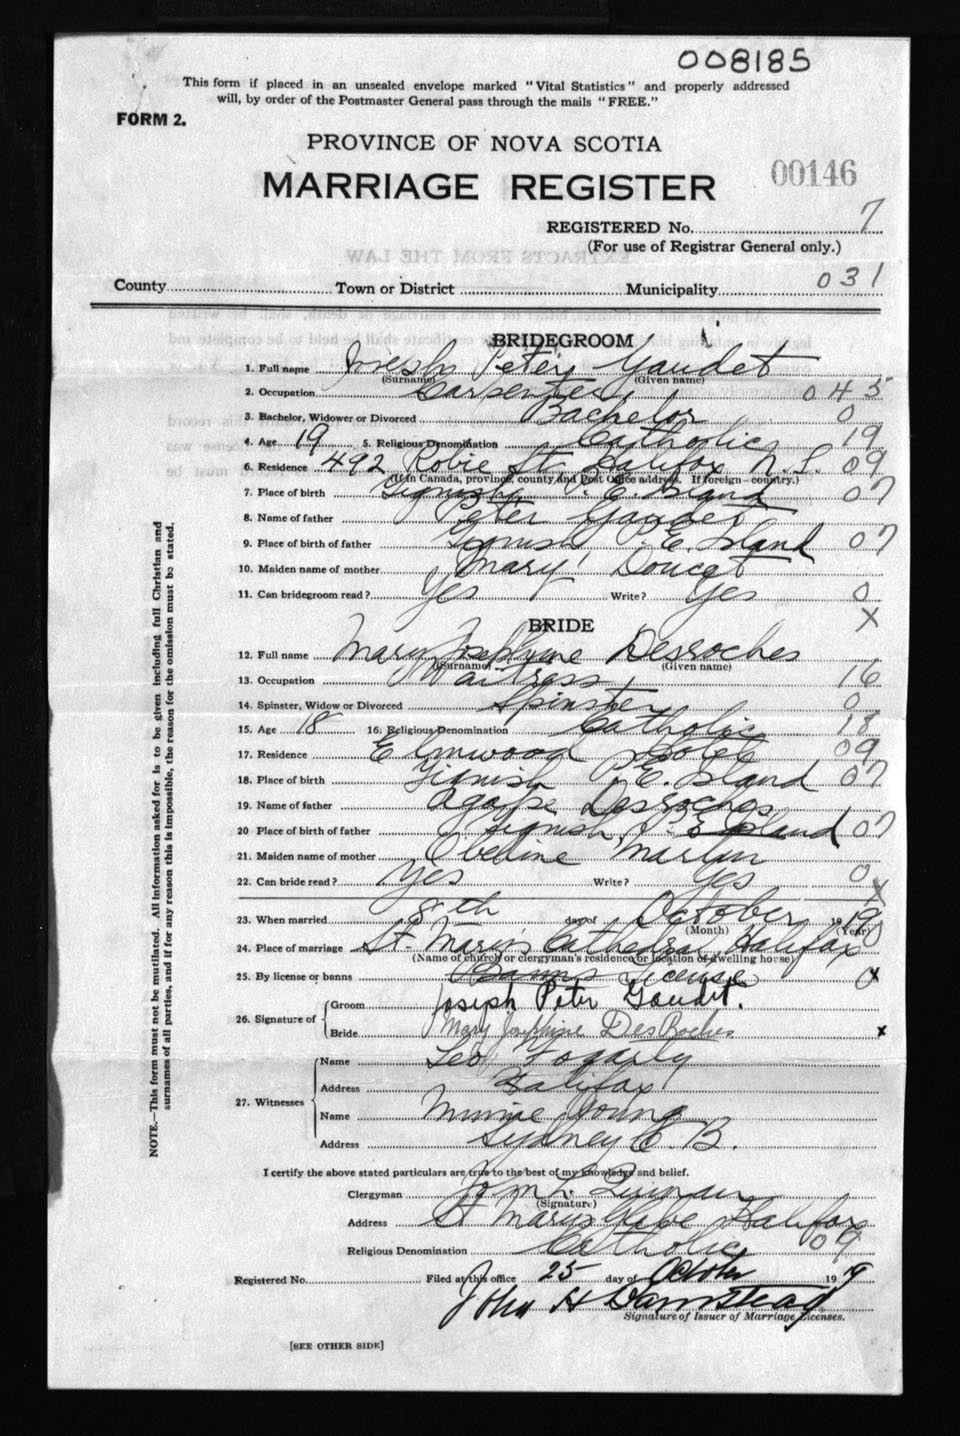 008185
This form if placed in an unsealed envelope marked "Vital Statistics" and properly addressed
will, by order of the Postmaster General pass through the mails "FREE."
FORM 2.
PROVINCE OF NOVA SCOTIA
00146
MARRIAGE REGISTER
REGISTERED No. 7
(For use of Registrar General only.)
County Town or District Municipality 031
BRIDEGROOM
1. Full name Joseph Peter Gaudet
(Surname) (Given name)
2. Occupation Carpenter 045
3. Bachelor, Widower or Divorced Bachelor 0
4. Age 19 5. Religious Denomination Catholic 19
6. Residence 492 Robie St. Halifax N.S. 09
(If in Canada, province, county and Post Office address. If foreign—country.)
7. Place of birth Tignish P.E. Island 07
8. Name of father Peter Gaudet
9. Place of birth of father Tignish P.E. Island 07
10. Maiden name of mother Mary Doucet
11. Can bridegroom read? Yes Write? Yes 0
X
BRIDE
12. Full name Mary Josephine Desroches
(Surname) (Given name)
13. Occupation Waitress 16
14. Spinster, Widow or Divorced Spinster 0
15. Age 18 16. Religious Denomination Catholic 18
17. Residence Elmwood Hotel 09
18. Place of birth Tignish P.E. Island 07
19. Name of father Agapé Desroches
20 Place of birth of father Tignish, P.E Island 07
21. Maiden name of mother Obeline Martin
22. Can bride read? Yes Write? Yes 0
X
23. When married 8th day of October 1919
(Month) (Year)
24. Place of marriage St. Mary's Cathedral, Halifax
(Name of church or clergyman's residence or location of dwelling house)
25. By license or banns Banns License 0 x
26. Signature of Groom Joseph Peter Gaudet.
Bride Mary Josephine DesRoches x
27. Witnesses Name Leo Fogarty
Address Halifax
Name Minnie Young
Address Sydney C.B.
I certify the above stated particulars are true to the best of my knowledge and belief.
Clergyman
(Signature)
Address St Marys Glebe Halifax
Religious Denomination Catholic 09
Registered No. Filed at this office 25 day of October 1919
John H Barnstead
Signature of Issuer of Marriage Licenses.
[SEE OTHER SIDE]
NOTE.—This form must not be mutilated. All information asked for is to be given including full Christian and
surnames of all parties, and if for any reason this is impossible, the reason for the omission must be stated.